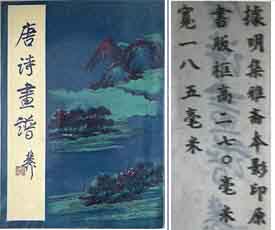 唐诗畫譜
據明集雅斋本影印原
書版框高二七〇毫米
寬一八五毫米